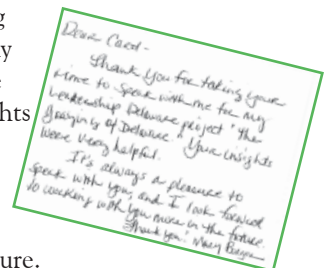 g
y
e
hts
ure.
Dear Carol -
Thank you for taking your
time to speak with me for my
Leadership Delaware project "the
graying of Delaware." Your insights
were very helpful.
It's always a pleasure to
speak with you, and I look forward
to working with you more in the future.
Thank you! Mary